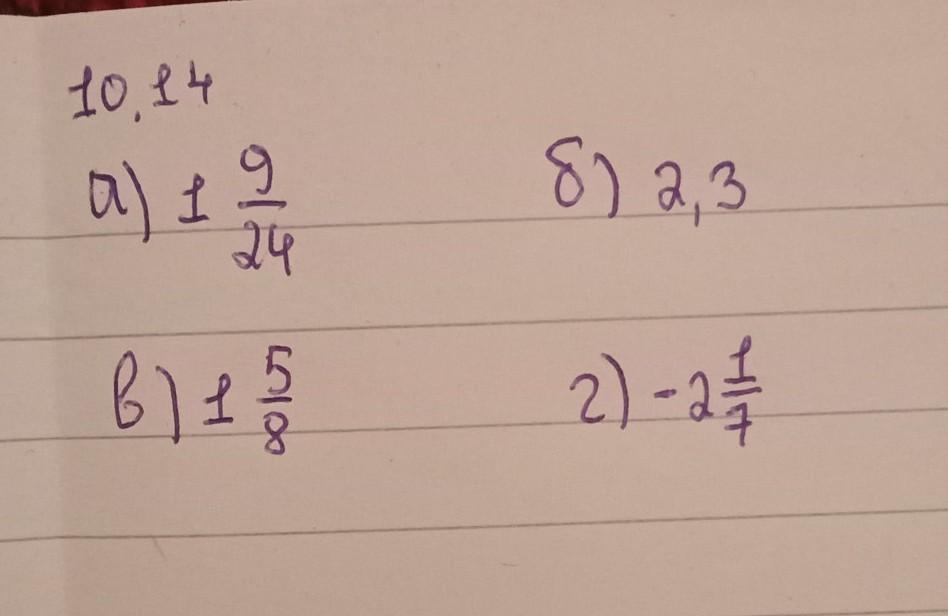 10.14
а) 1 9/24 б) 2,3
в) 1 5/8 г) -2 1/7